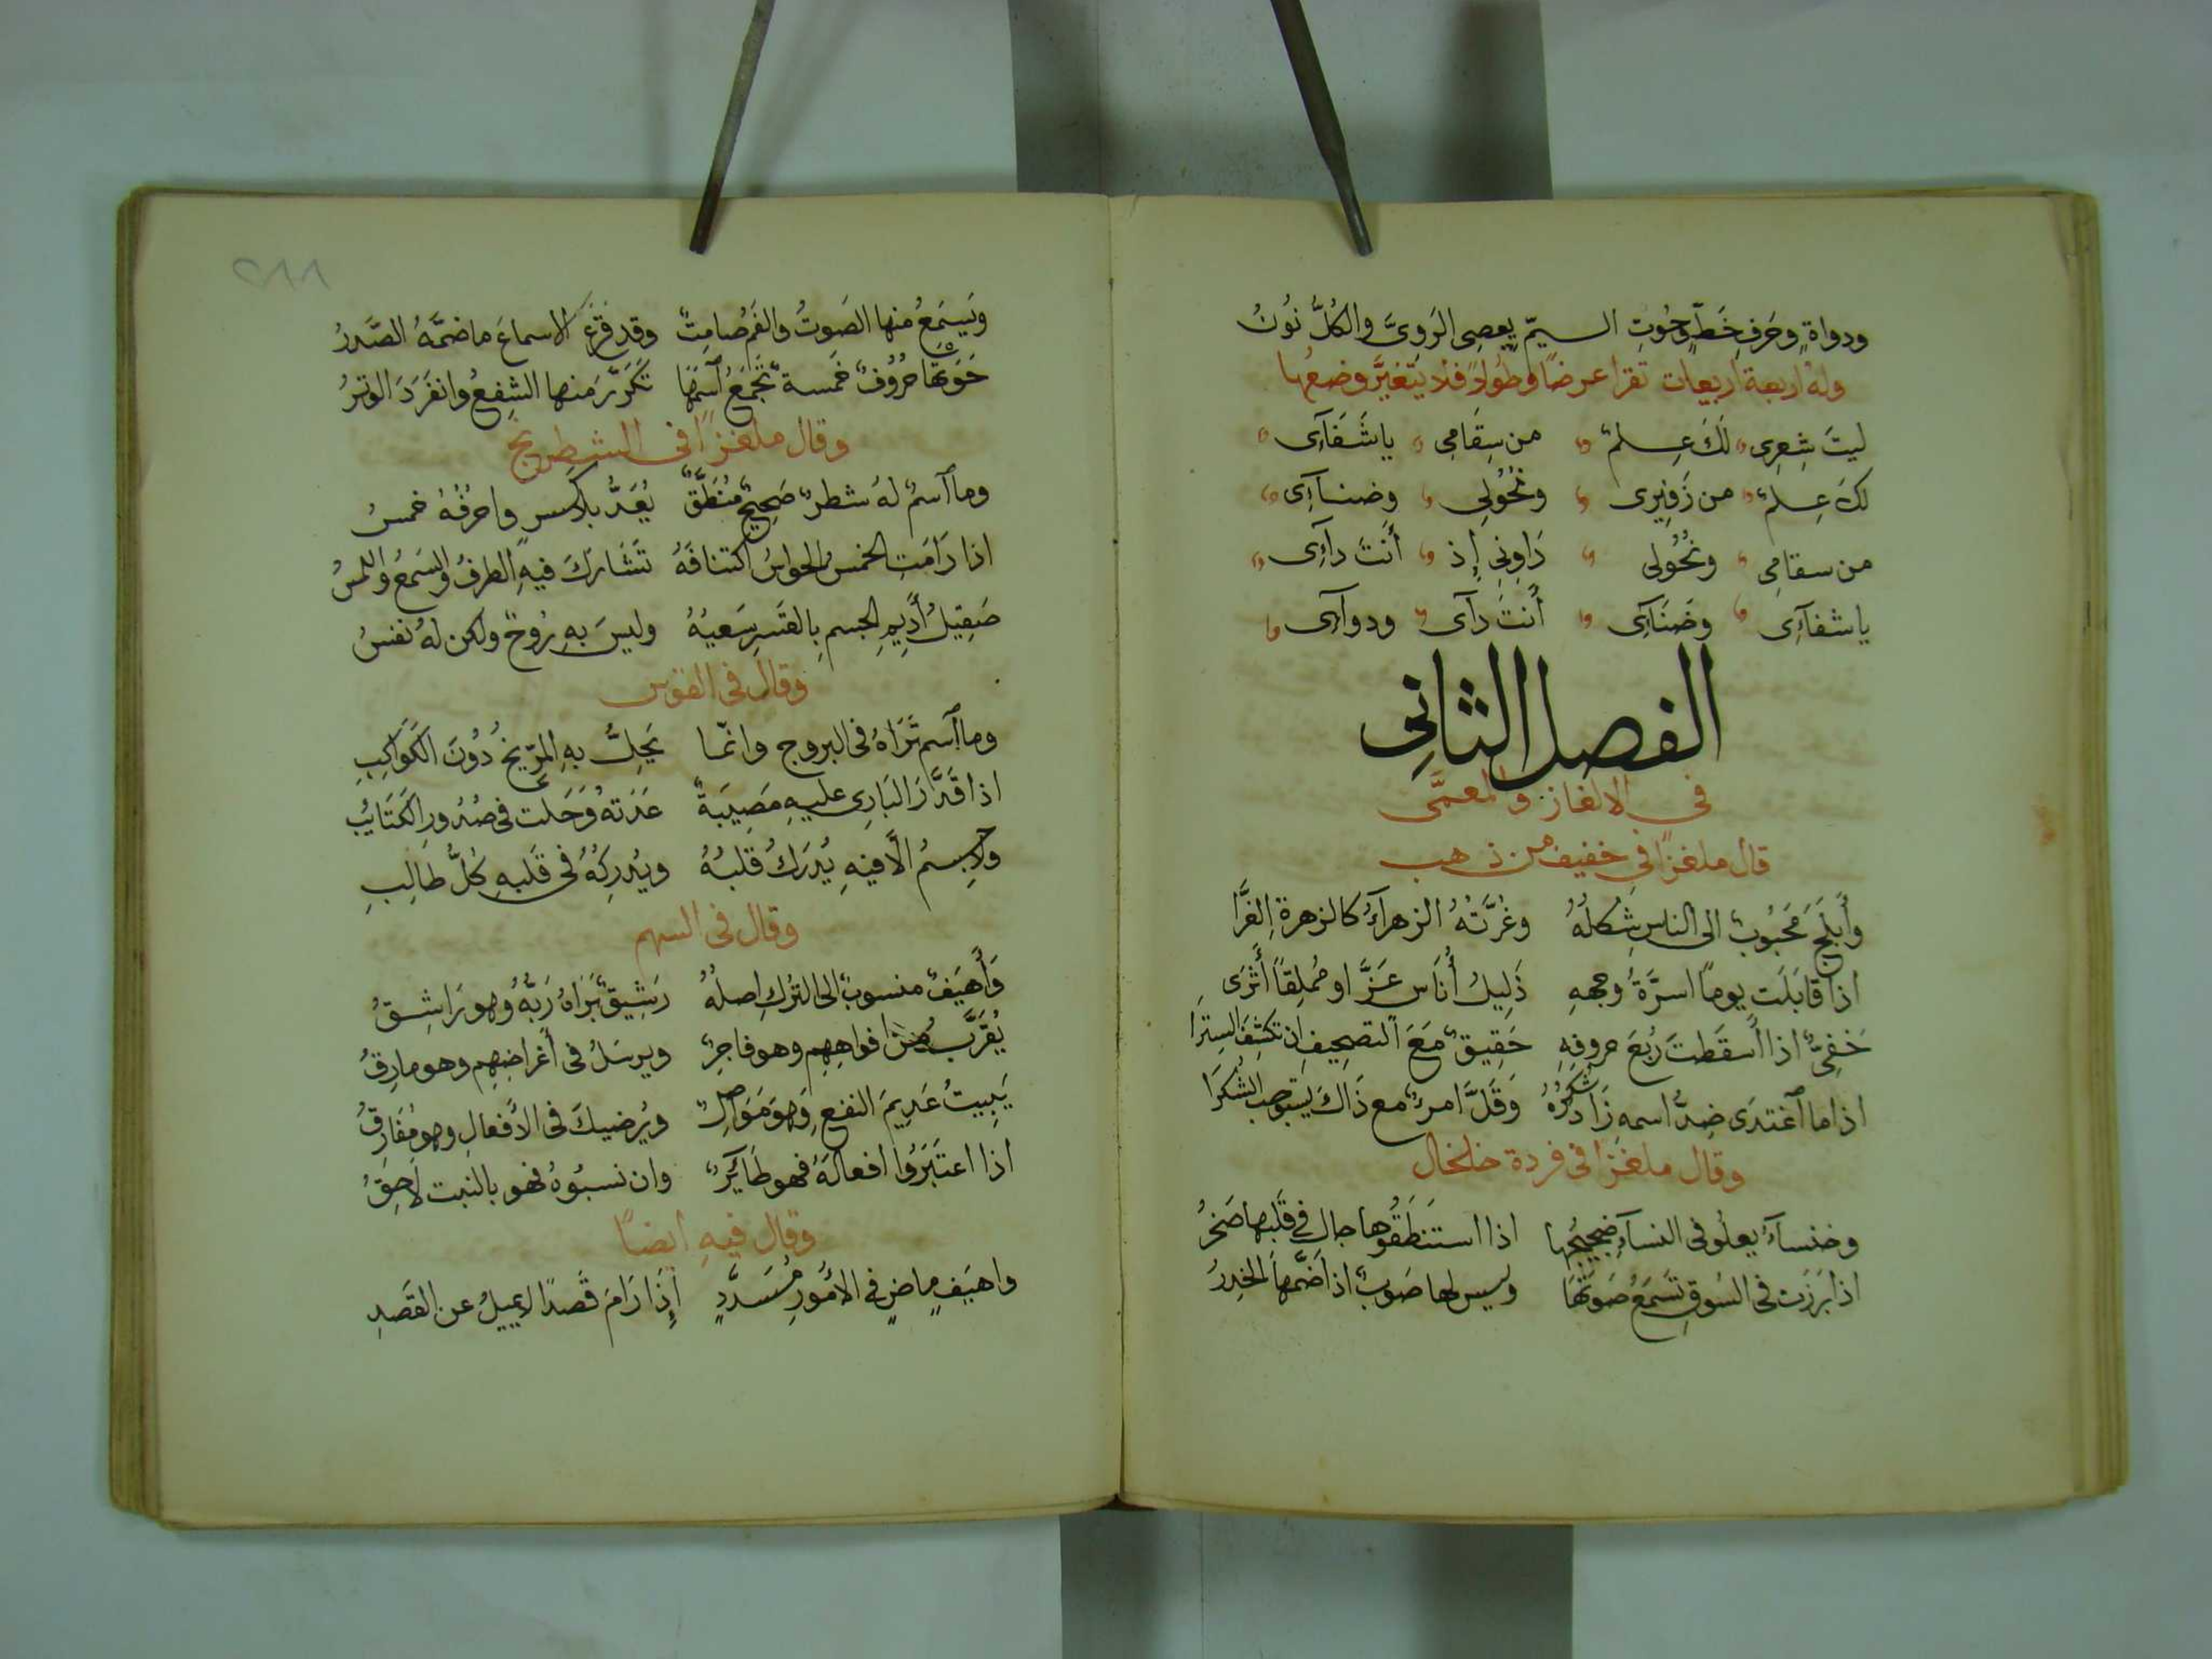 ودواةٍ وحَرفِ خَطٍّ وحُوتِ السيمّ يعصِى الرَوِىَّ والكُلُّ نُونُ
وله اربعة اربعيات تقرا عرضًا وطُولاً فلا يتغيَّر وضعُها
ليتَ شِعرِى لكَ عِلمٌ من سِقَامِى ياشَفَآءِى
لكَ عِلمٌ من زَفِيرِى ونحُولِى وضنآءِى
من سقامِى ونحُولى دَاوِنِى إِذ أنتَ دآءِى
ياشفآءِى وضَنَآءِى أنتَ دآى ودوآءِى
الفصل الثانِى
فى الالغاز والمعمَّى
قال ملغزًا فِى خفيف من ذهب
وأَبلَجَ مَحبُوبٌ الى الناسِ شِكلُهُ وغُرَّتُهُ الزهرآءُ كالزهرةِ الغرَّا
اذا قابَلَت يومًا اسرَّةُ وجههِ ذَلِيلُ أُنَاسٍ عَزَّ او مُملِقًا أثرَى
خَفِىٌّ اذا أسقَطتَ رُبعَ حروفِهِ حَقِيقٌ مَعَ التصحِيفِ ان تكشِفَ السِترا
اذا ما اغتدَى ضِدُّ اسمهِ زَادَ شُكرُهُ وَقَلَّ امرءٌ مع ذَاكَ يَستوجِب الشُكرَا
وقال ملغزا فى فردة خلخال
وخنسآءُ يعلُو فى النسآءِ ضجيجُها اذا استَنطَقُوها جال فِى قَلبِها صَخرُ
اذا بَرَزَت فى السُوقِ تَسمَعُ صَوتَهَا وليس لها صَوتٌ اذا ضَمَّها الخِدرُ
٢٨٨
ويَسمَعُ منها الصَوتُ والفَمُ صامِتٌ وقد قرَعَ الاسماعَ ما ضمَّهُ الصَّدرُ
حَوَتها حرُوُفٌ خَمسةٌ تَجمَعُ اسمَهَا تَكَرَّرَ منها الشِفعُ وانفَرَدَ الوترُ
وقال ملغزًا فى الشطرنج
وما اسمٌ لهُ شطرٌ صَحِيحٌ مُنَطَّقٌ يُعَدُّ بلا كسرٍ واحرُفُهُ خمسُ
اذا رَامَتِ الخمسُ الحواسُ اكتنافَهُ تَشَارَكَ فيهِ الطرفُ والسَمعُ واللمسُ
صَقِيلُ أَدِيمِ الجسمِ بِالقَسرِ سَعيُهُ وليسَ بهِ رُوحٌ ولكن لهُ نفسُ
وقال فى القوس
وما اسم تَرَاهُ فى البروج وانّما يَحِلُّ بهِ المِرّيخُ دُونَ الكَوَاكِبِ
اذا قَدَّرَ البَارِى عليهِ مصِيبَةً عَدَتهُ وَحَلت فى صُدُورِ الكَتَائبِ
ولا جِسمُ الَّا فيهِ يُدرَكُ قَلبُهُ ويُدرِكُهُ فى قَلبهِ كُلُّ طَالِبِ
وقال فى السهم
وَأهيَفٌ منسوبٌ الى التُركِ اصلهُ رَشِيقٌ بَرَاهُ رَبُّهُ وهو رَاشِقُ
يُقَرَّبُ من افواهِهِم وهو فاجِرٌ ويرسَلُ فى أغراضِهِم وهو مارِقُ
يَبِيتُ عَدِيمَ النفعِ وهو مَوَاصِلٌ ويُرضيكَ فى الأفعالِ وهو مُفَارِقُ
اذا اعتَبَرُوا افعالَهُ فهو طَآئِرٌ وان نسبُوهُ فهو بالنبت لَاحِقُ
وقال فيهِ ايضًا
واهيَفٍ ماضٍ فى الأمُورِ مُسَدَّدٍ إِذَا رَامَ قَصدًا لايميلُ عن القَصدِ